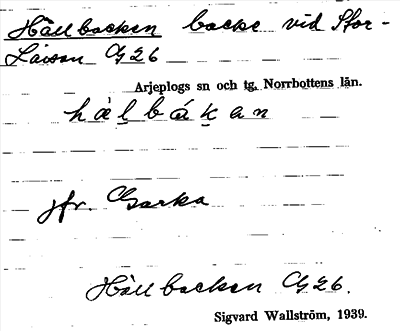 Hällbacken backe vid Stor-
Laisan G 26
Arjeplogs sn och tg, Norrbottens län.
hàl̲bák̲an
jfr. Garka
Hällbacken G 26.
Sigvard Wallström, 1939.